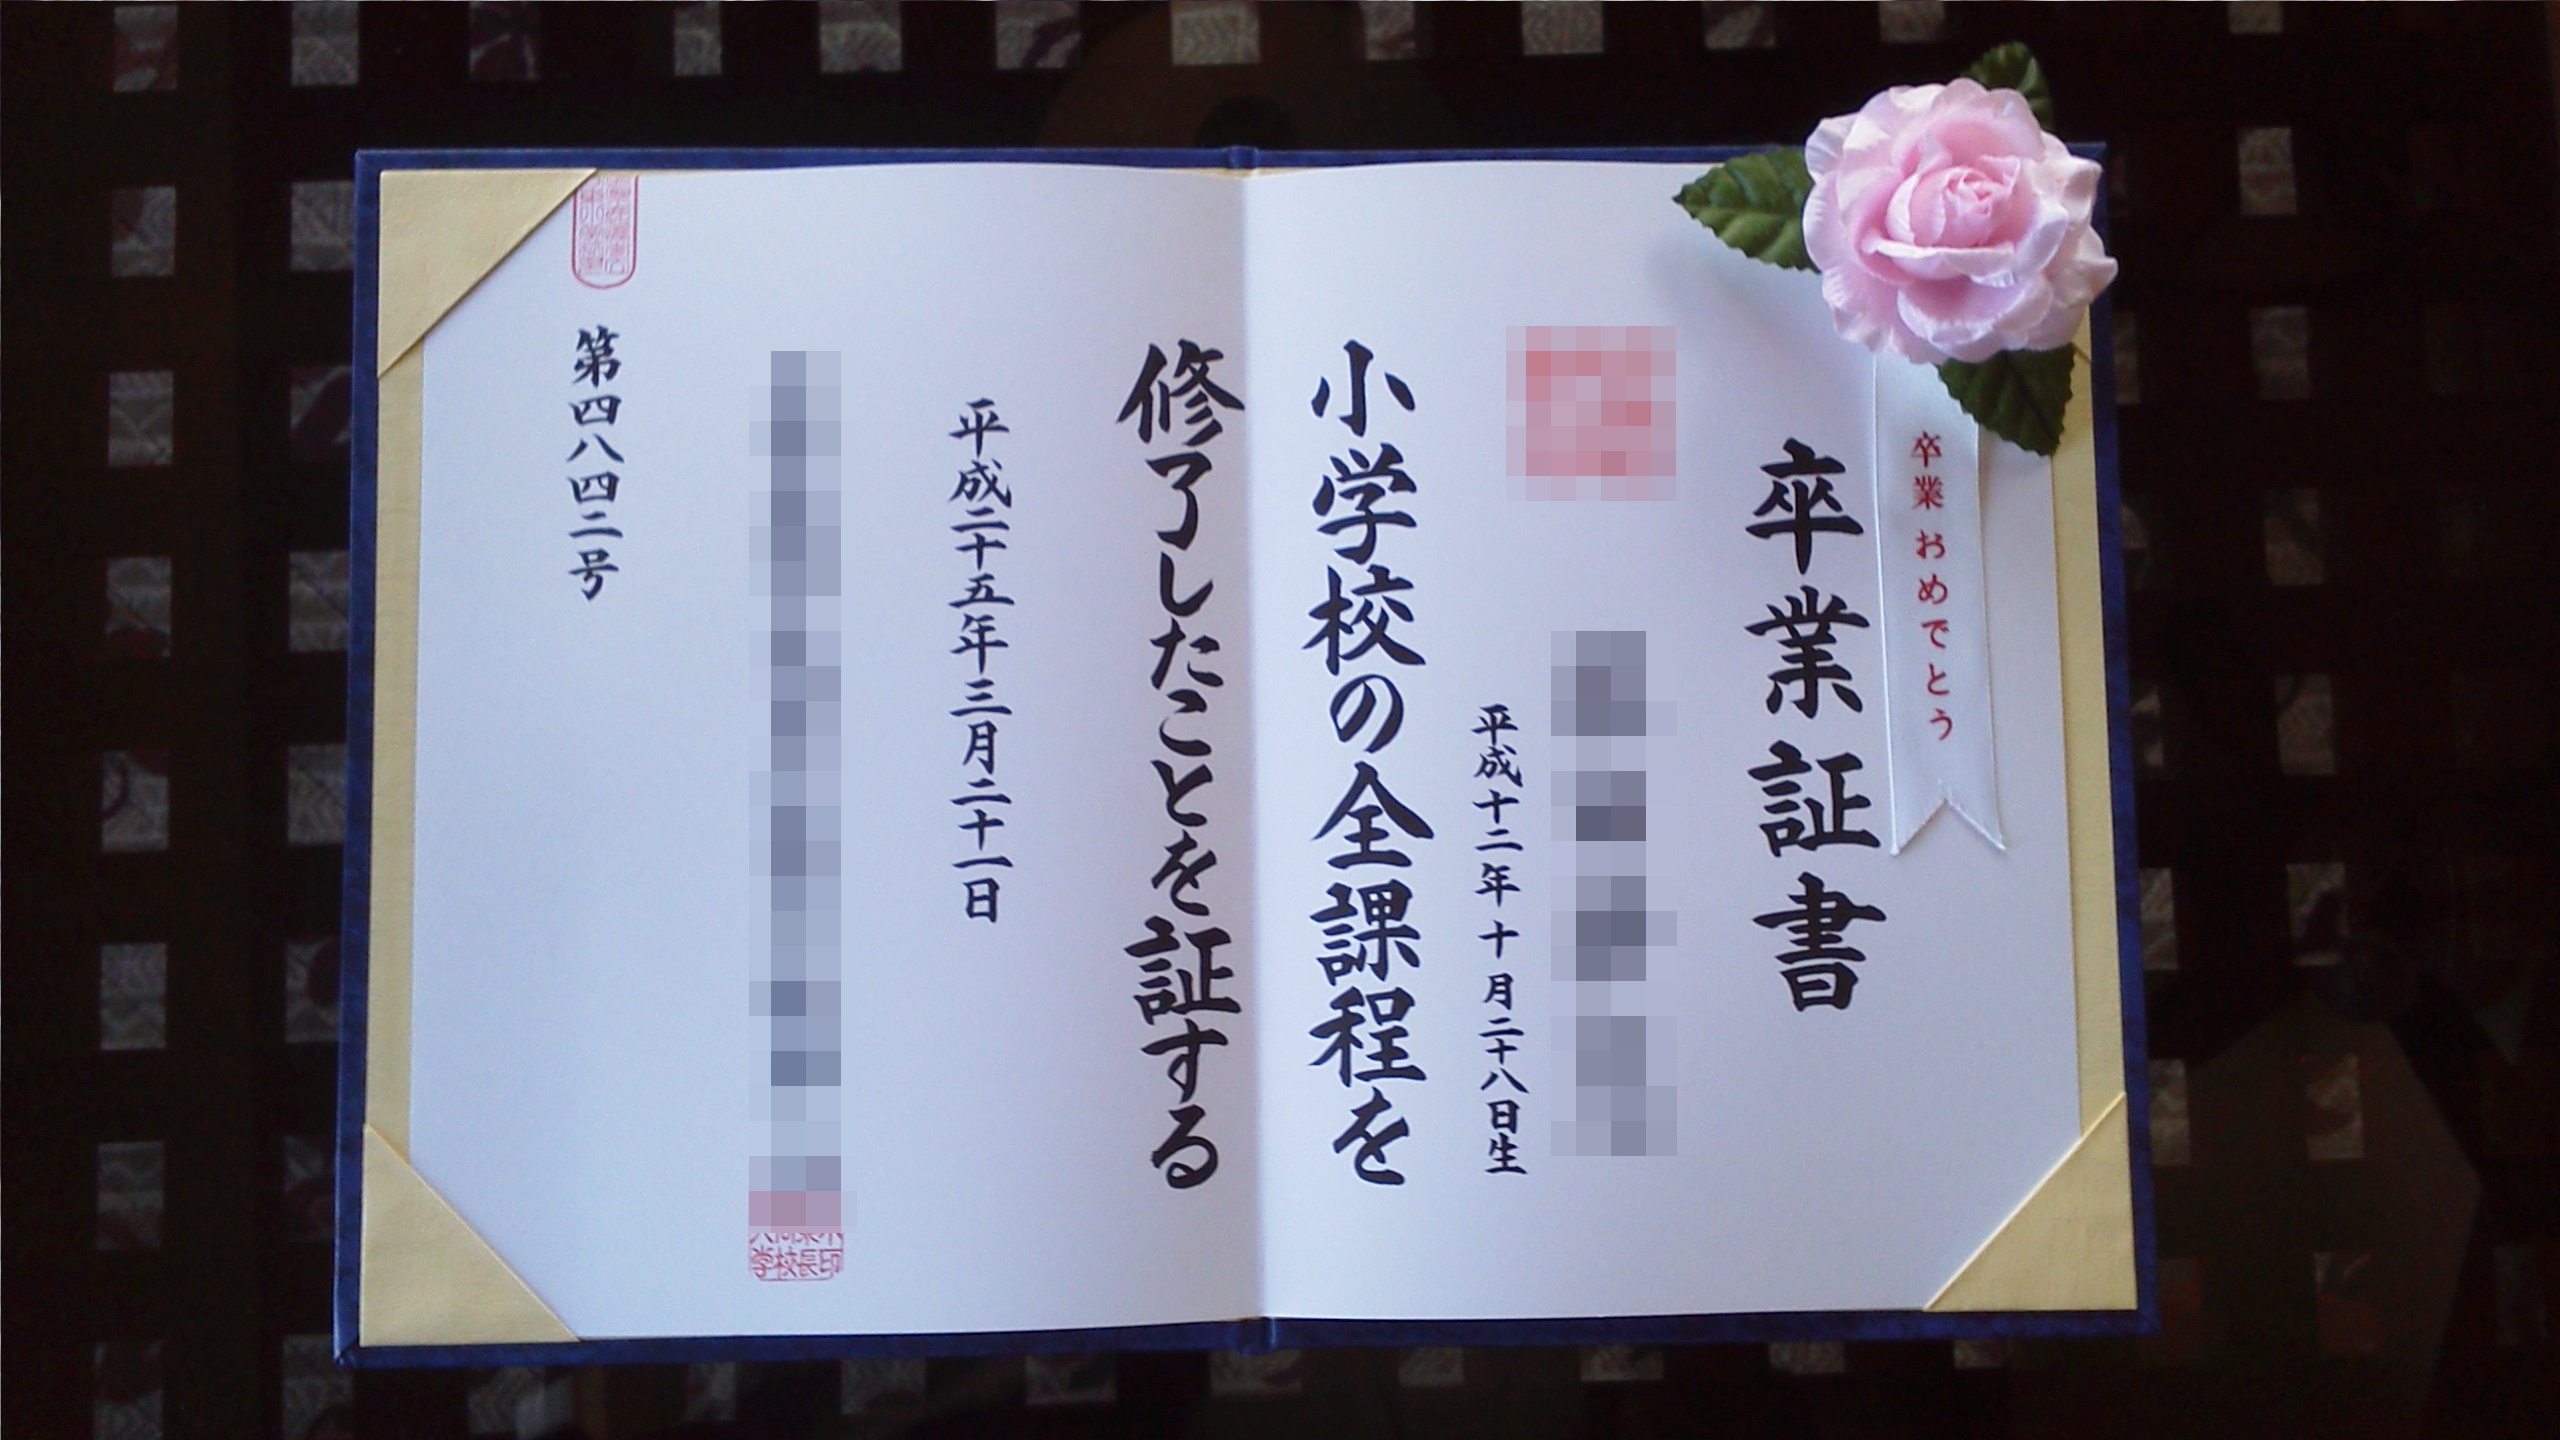 卒業おめでとう
卒業証書
平成十二年十月二十八日生
小学校の全課程を
修了したことを証する
平成二十五年三月二十一日
学校長印
第四八四二号